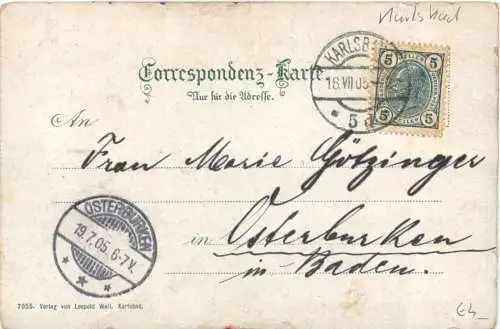 Karlsbad
Correspondenz-Karte
Nur für die Adresse.
KARLSB
18 VII 05
* 5 a
5 HELLER 5
5 HELLER 5
An
Frau Marie Götzinger
in Osterburken
in Baden.
OSTERBURKEN
19.7.05. 6-7V.
7055. Verlag von Leopold Weil, Karlsbad.